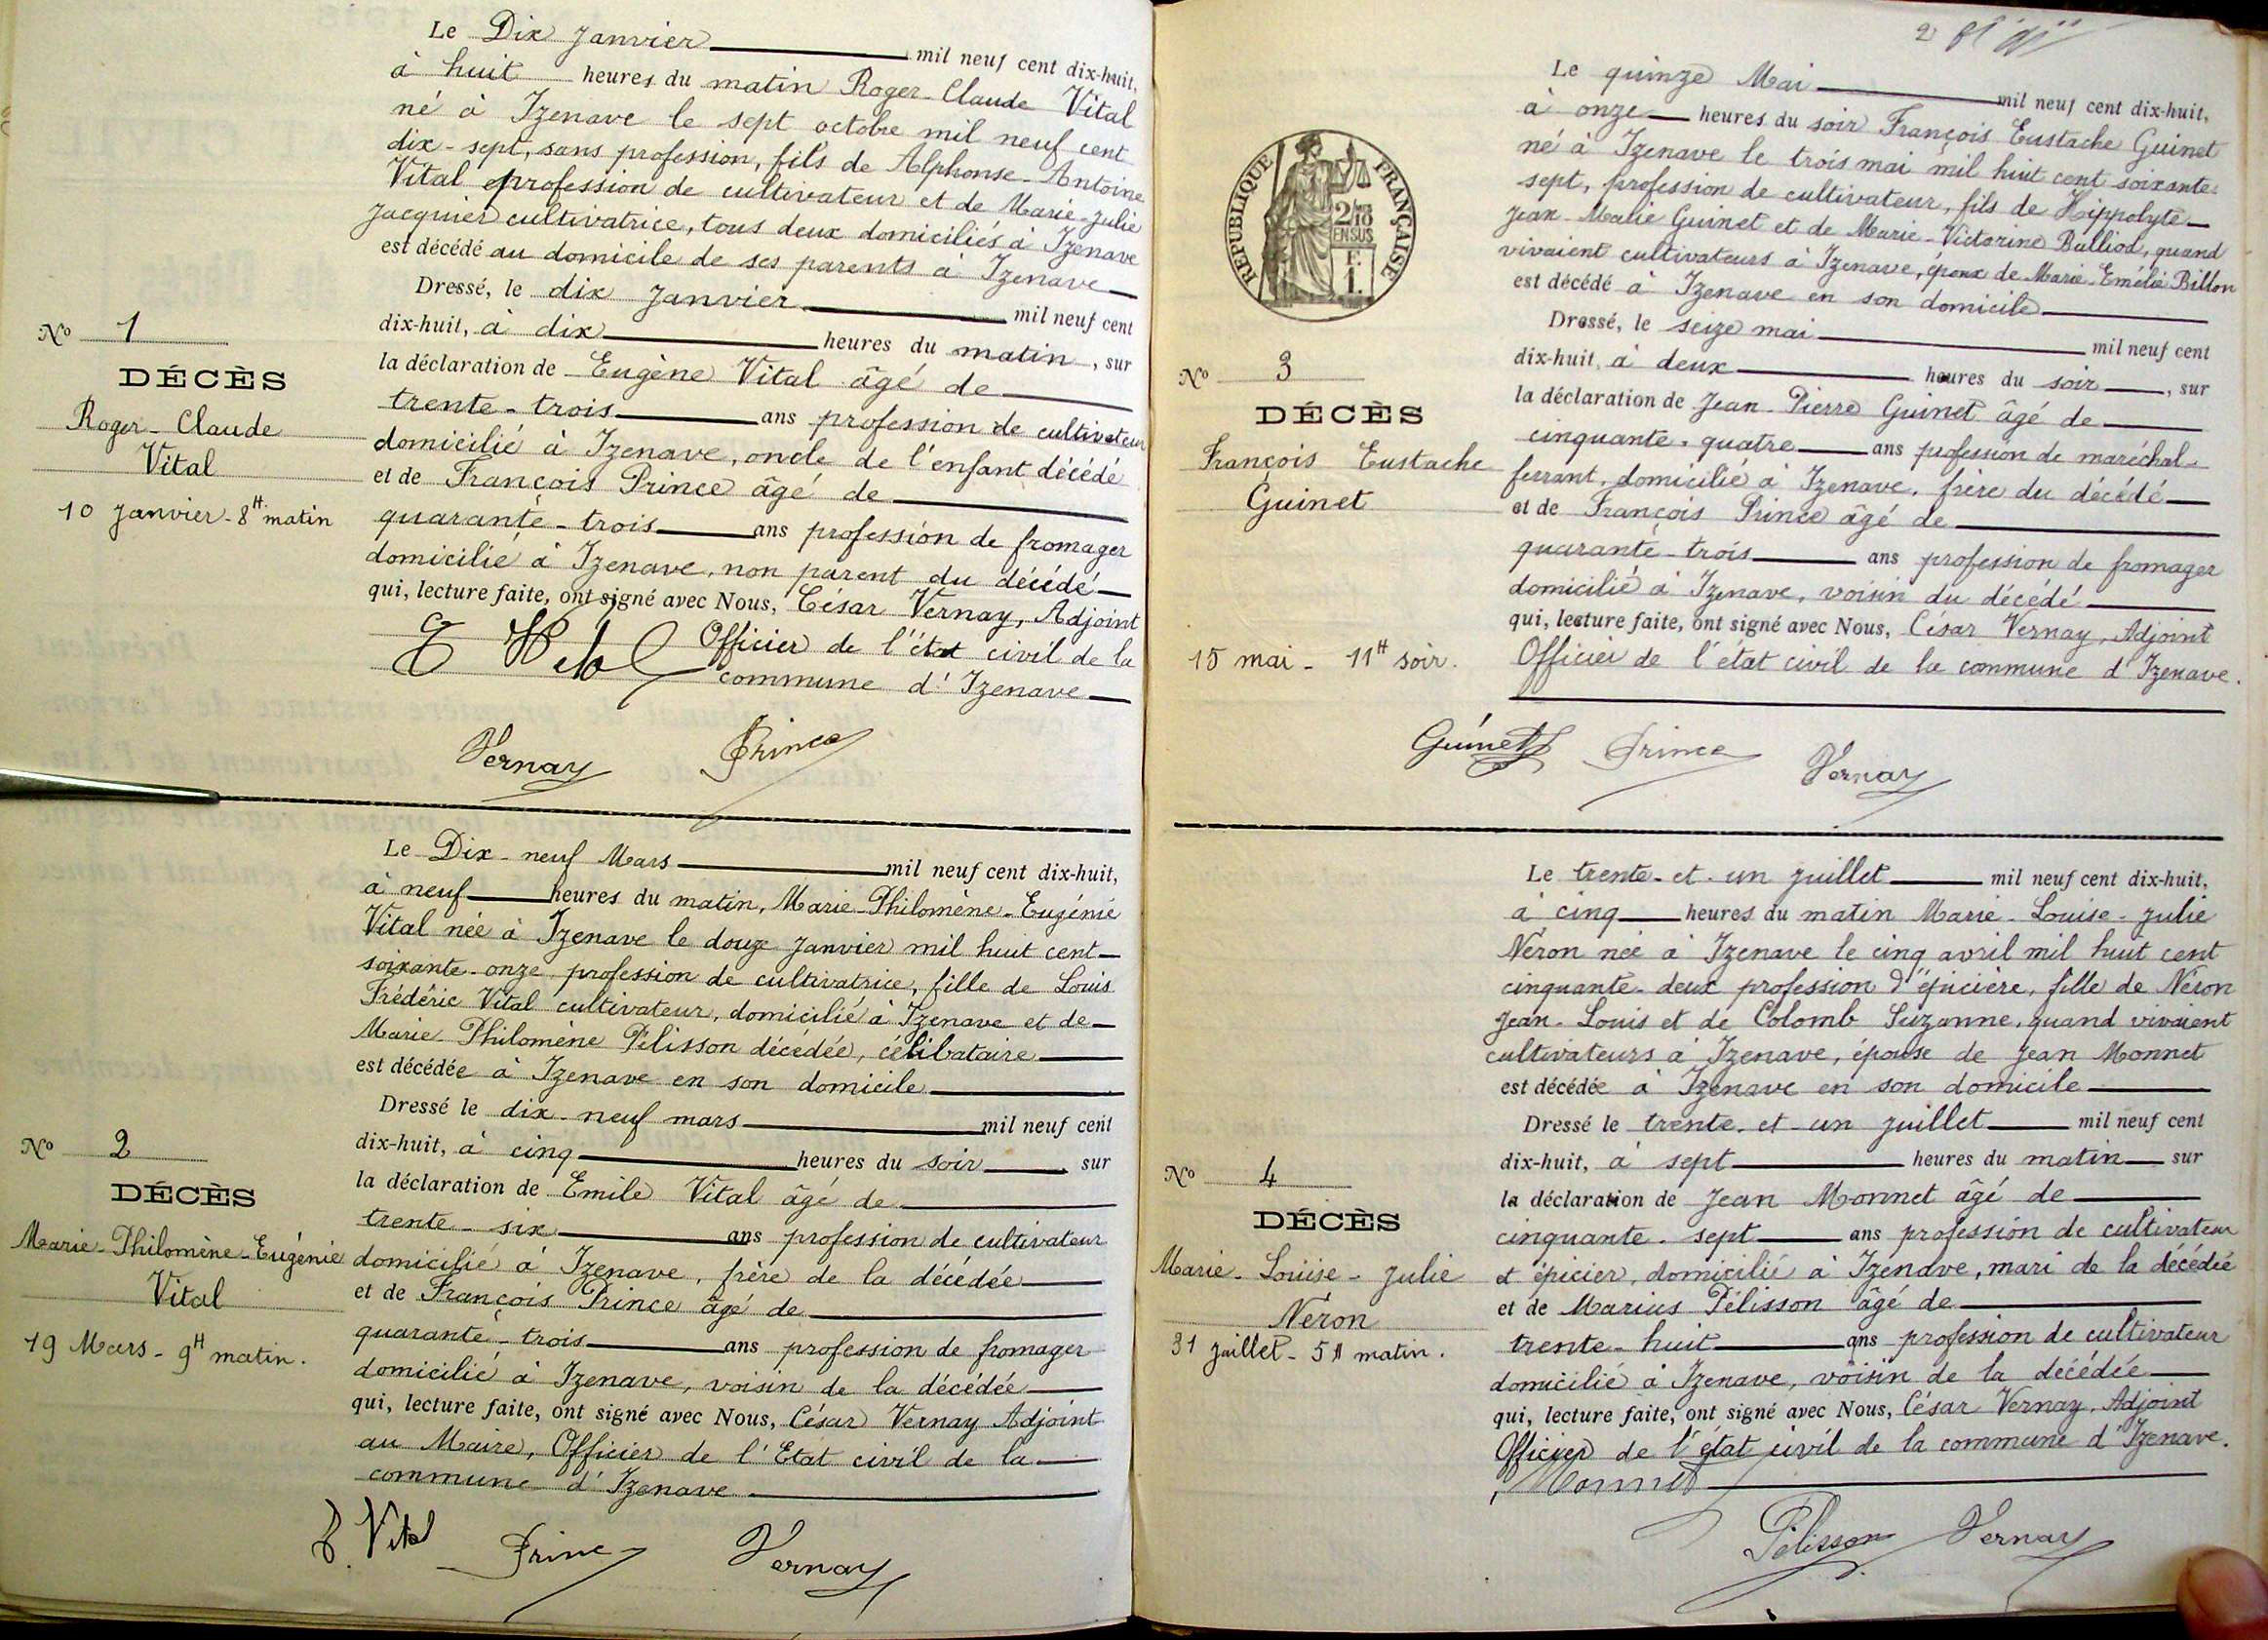 Le Dix Janvier mil neuf cent dix-huit,
à huit heures du matin Roger-Claude Vital
né à Izenave le sept octobre mil neuf cent
dix-sept, sans profession, fils de Alphonse-Antoine
Vital profession de cultivateur et de Marie-Julie
Jacquier cultivatrice, tous deux domiciliés à Izenave
est décédé au domicile de ses parents à Izenave
Dressé, le dix Janvier mil neuf cent
dix-huit, à dix heures du matin, sur
la déclaration de Eugène Vital âgé de
trente-trois ans profession de cultivateur
domicilié à Izenave, oncle de l'enfant décédé
et de François Prince âgé de
quarante-trois ans profession de fromager
domicilié à Izenave, non parent du décédé
qui, lecture faite, ont signé avec Nous, César Vernay, Adjoint
Officier de l'état civil de la
commune d'Izenave
Vernay Prince
No 1
DÉCÈS
Roger-Claude
Vital
10 Janvier-8H matin
Le Dix-neuf Mars mil neuf cent dix-huit,
à neuf heures du matin, Marie-Philomène-Eugénie
Vital née à Izenave le douze Janvier mil huit cent
soixante-onze profession de cultivatrice, fille de Louis
Frédéric Vital cultivateur, domicilié à Izenave et de
Marie Philomène Pélisson décédée, célibataire
est décédée à Izenave en son domicile
Dressé le dix-neuf mars mil neuf cent
dix-huit, à cinq heures du soir, sur
la déclaration de Emile Vital âgé de
trente-six ans profession de cultivateur
domicilié à Izenave, frère de la décédée
et de François Prince âgé de
quarante-trois ans profession de fromager
domicilié à Izenave, voisin de la décédée
qui, lecture faite, ont signé avec Nous, César Vernay Adjoint
au Maire, Officier de l'Etat civil de la
commune d'Izenave
Vital Prince Vernay
No 2
DÉCÈS
Marie-Philomène-Eugénie
Vital
19 Mars-9H matin.
2
RÉPUBLIQUE FRANÇAISE
2/10
EN SUS
F.
1.
Le quinze Mai mil neuf cent dix-huit,
à onze heures du soir François Eustache Guinet
né à Izenave le trois mai mil huit cent soixante
sept, profession de cultivateur, fils de Hippolyte
Jean-Marie Guinet et de Marie-Victorine Balliod, quand
vivaient cultivateurs à Izenave, époux de Marie-Emélie Billon
est décédé à Izenave en son domicile
Dressé, le seize mai mil neuf cent
dix-huit, à deux heures du soir, sur
la déclaration de Jean-Pierre Guinet âgé de
cinquante-quatre ans profession de maréchal-
ferrant, domicilié à Izenave, frère du décédé
et de François Prince âgé de
quarante-trois ans profession de fromager
domicilié à Izenave, voisin du décédé
qui, lecture faite, ont signé avec Nous, César Vernay, Adjoint
Officier de l'etat civil de la commune d'Izenave.
Guinet Prince Vernay
No 3
DÉCÈS
François Eustache
Guinet
15 mai - 11H soir.
Le trente-et-un Juillet mil neuf cent dix-huit,
à cinq heures du matin Marie-Louise-Julie
Néron née à Izenave le cinq avril mil huit cent
cinquante-deux profession d'épicière, fille de Néron
Jean-Louis et de Colomb Suzanne, quand vivaient
cultivateurs à Izenave, épouse de Jean Monnet
est décédée à Izenave en son domicile
Dressé le trente-et-un Juillet mil neuf cent
dix-huit, à sept heures du matin sur
la déclaration de Jean Monnet âgé de
cinquante-sept ans profession de cultivateur
et épicier, domicilié à Izenave, mari de la décédée
et de Marius Pélisson âgé de
trente-huit ans profession de cultivateur
domicilié à Izenave, voisin de la décédée
qui, lecture faite, ont signé avec Nous, César Vernay, Adjoint
Officier de l'état civil de la commune d'Izenave.
Monnet
Pélisson Vernay
No 4
DÉCÈS
Marie-Louise-Julie
Néron
31 Juillet-5H matin.